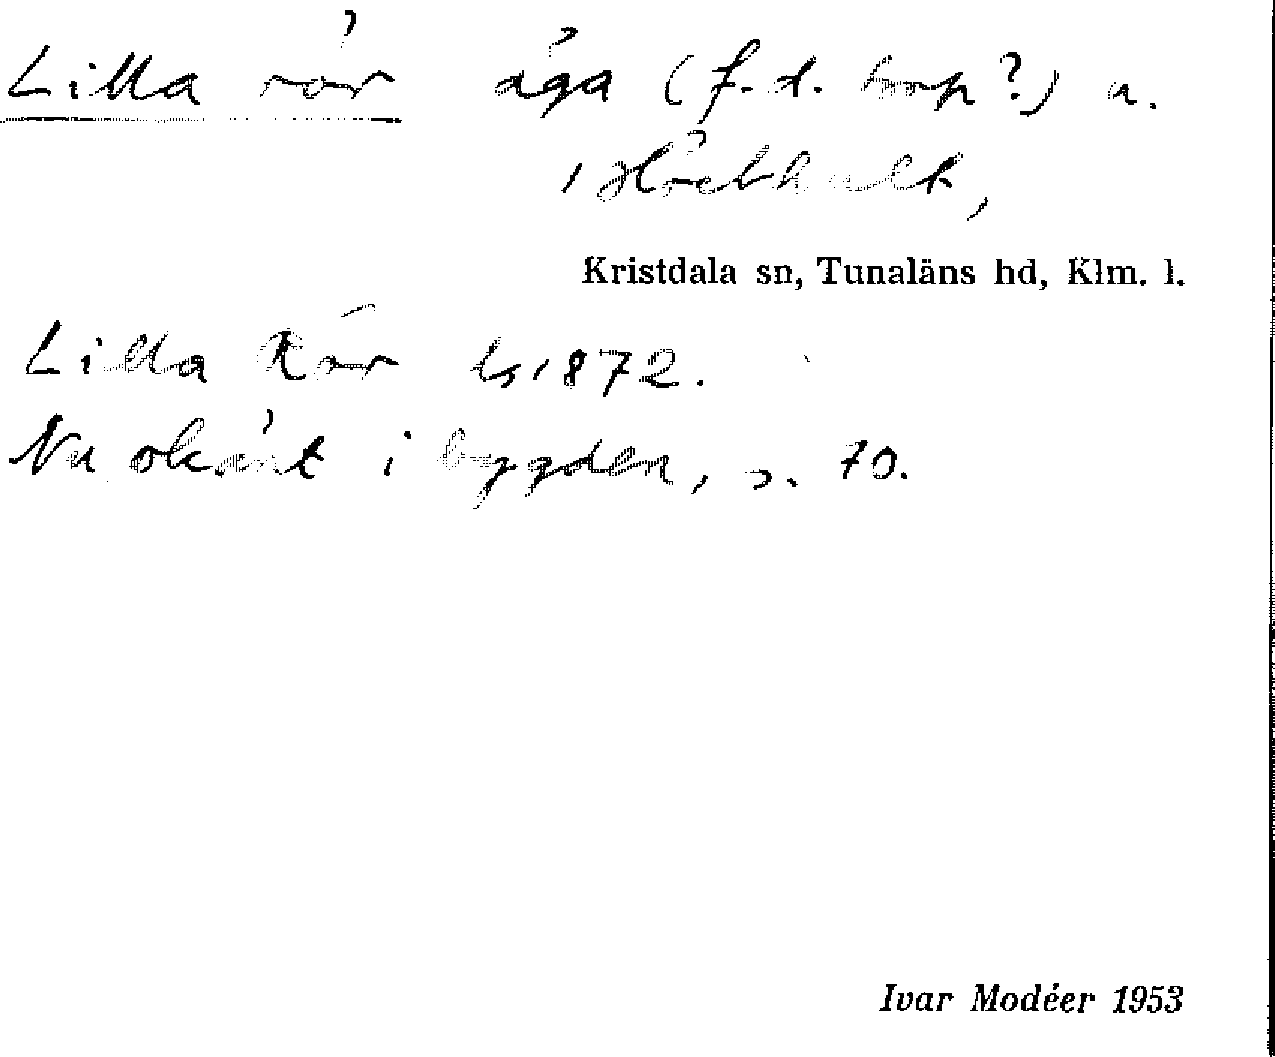 Lilla rör äga (f.d. torp?) u.
Höckhult,
Kristdala sn, Tunaläns hd, Klm. l.
Lilla Rör 1872.
Nu okänt i bygden, s. 70.
Ivar Modéer 1953